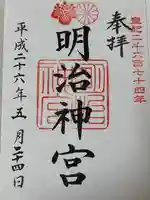 皇紀二千六百七十四年
奉拝
明治神宮
平成二十六年五月二十四日